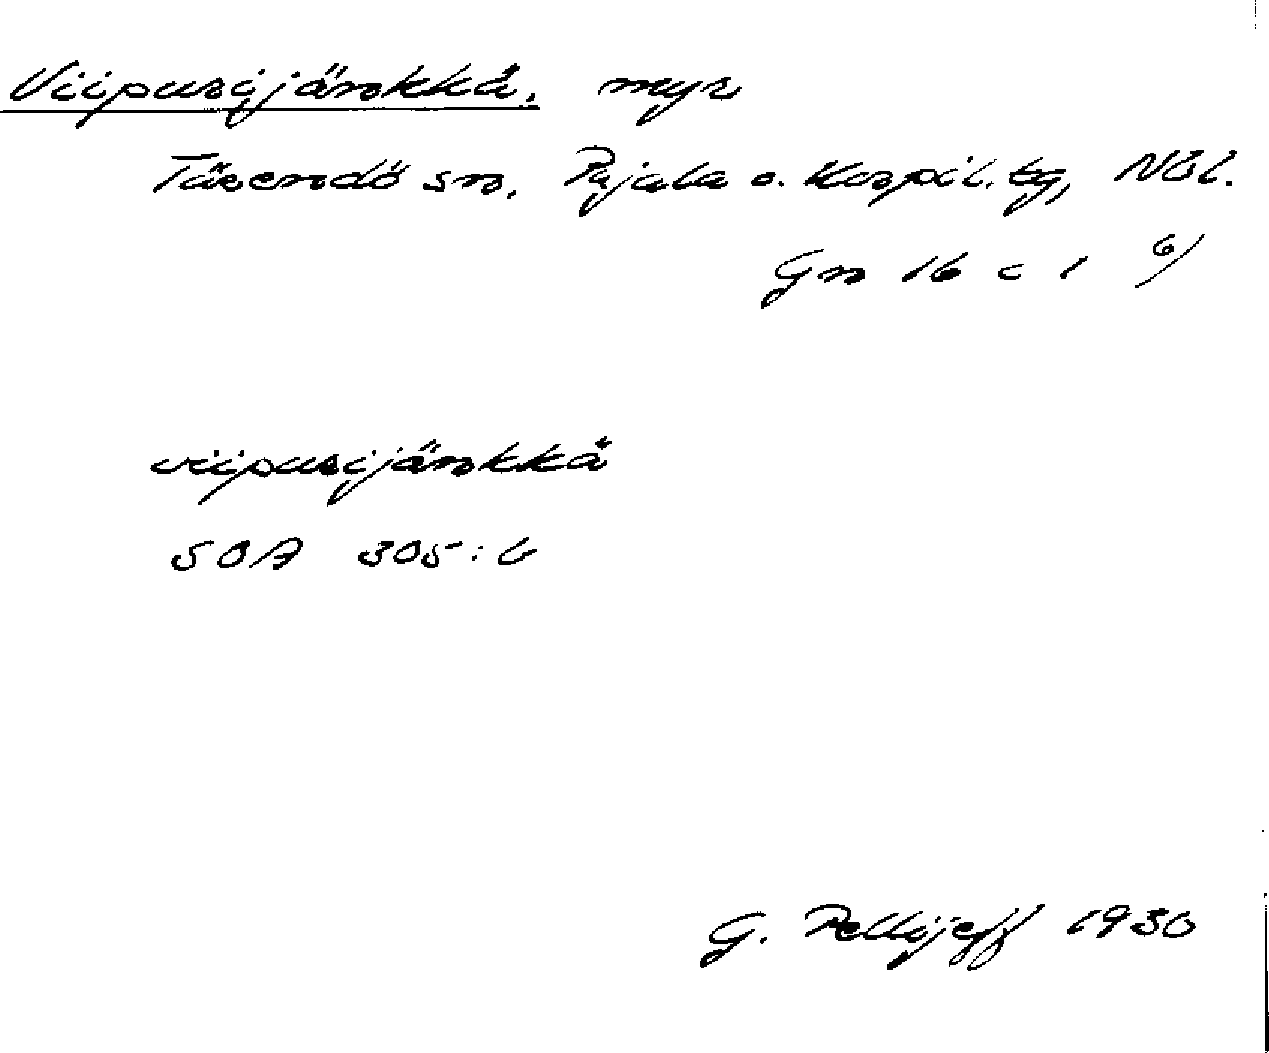 Viipurijänkkä, myr
Tärendö sn, Pajala o. Korpil. tg, Nbl.
Gn 16 c 1 6)
viipurijänkkä
SOA 305:6
G. Pellijeff 1930